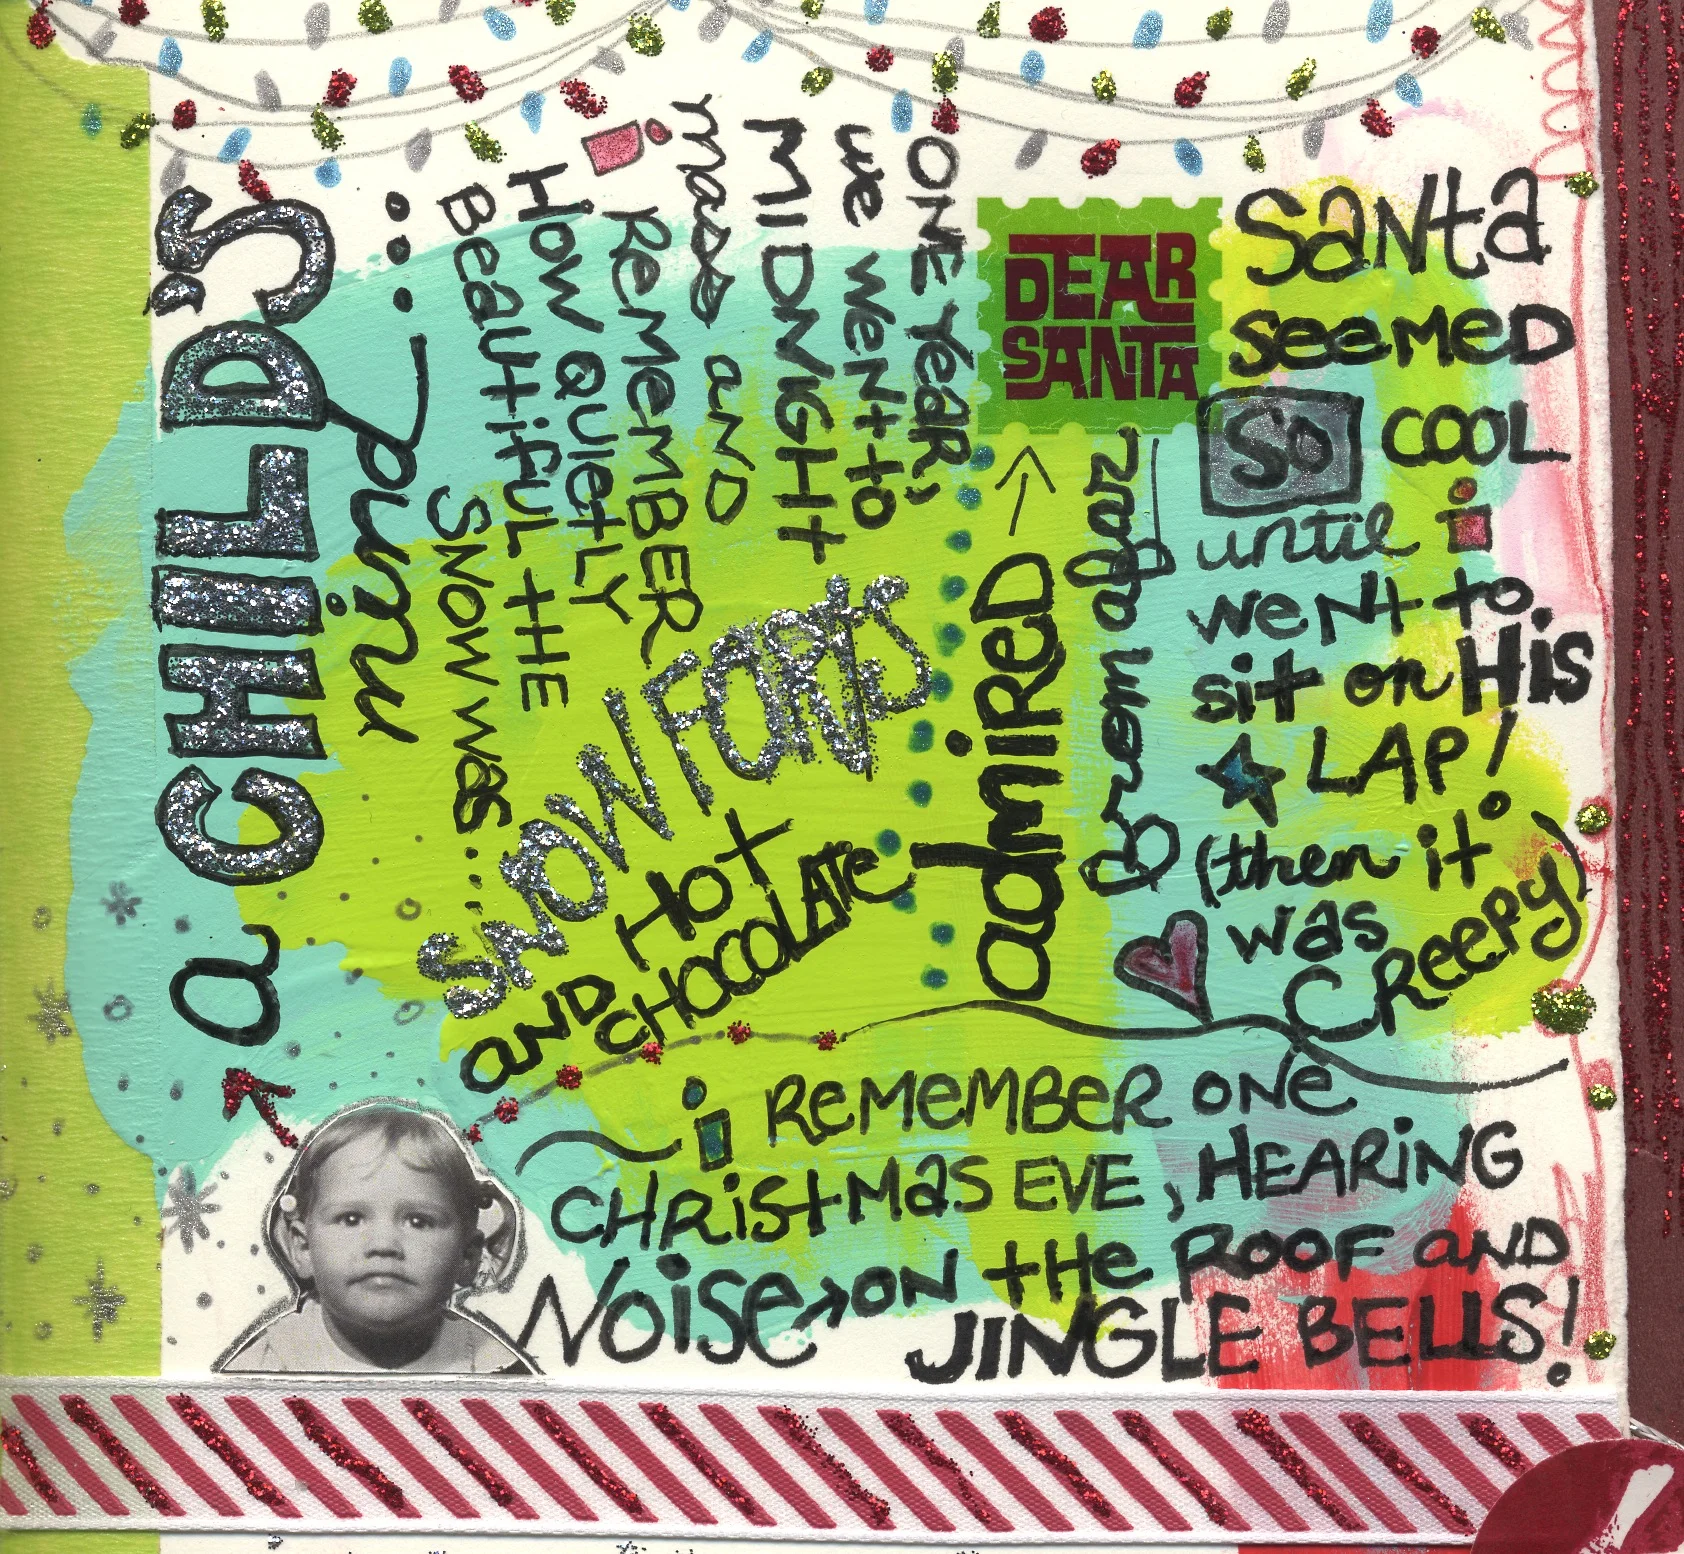 a CHILD'S
mind...
ONE Year,
we went to
MIDNIGHt
mass and
i ReMeMBER
How QUietLY
BeaUtifUL tHE
SNOW was...
SNOW FORtS
aND Hot
CHOCOLAte
DEAR
SANTA
admiReD
from afar
SaNta
seeMeD
So COOL
until i
weNt to
sit on His
LAP!
(then it
was
CReepy)
i ReMeMBeR ONe
CHRistMaS EVE, HEARiNG
Noise → ON tHe ROOF aND
JINGLE BELLS!